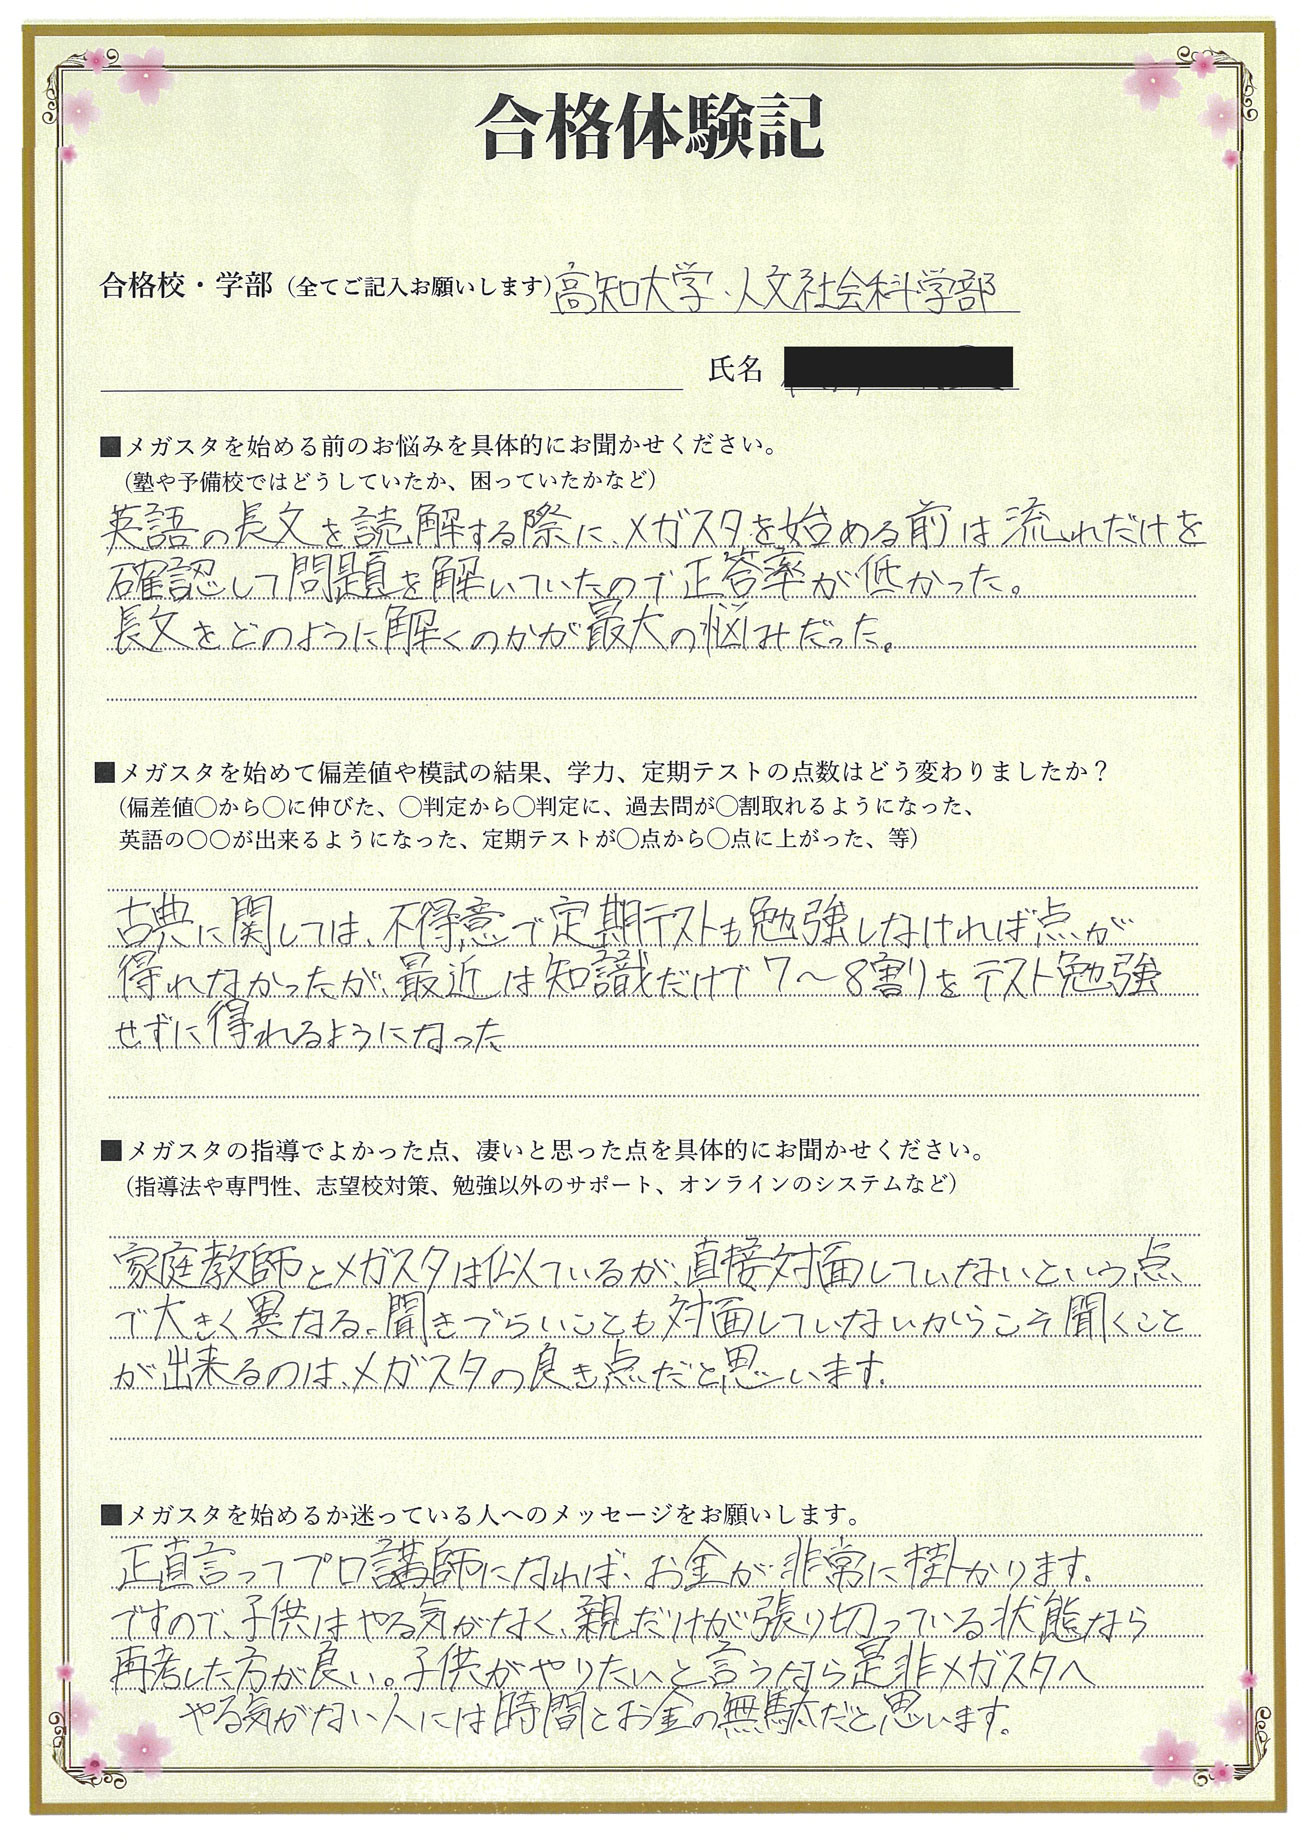 合格体験記
合格校・学部（全てご記入お願いします）高知大学、人文社会科学部
氏名
■メガスタを始める前のお悩みを具体的にお聞かせください。
（塾や予備校ではどうしていたか、困っていたかなど）
英語の長文を読解する際に、メガスタを始める前は流れだけを
確認して問題を解いていたので正答率が低かった。
長文をどのように解くのかが最大の悩みだった。
■メガスタを始めて偏差値や模試の結果、学力、定期テストの点数はどう変わりましたか？
（偏差値〇から〇に伸びた、〇判定から〇判定に、過去問が〇割取れるようになった、
英語の〇〇が出来るようになった、定期テストが〇点から〇点に上がった、等）
古典に関しては、不得意で定期テストも勉強しなければ点が
得れなかったが、最近は知識だけで7～8割りをテスト勉強
せずに得れるようになった
■メガスタの指導でよかった点、凄いと思った点を具体的にお聞かせください。
（指導法や専門性、志望校対策、勉強以外のサポート、オンラインのシステムなど）
家庭教師とメガスタは似ているが、直接対面していないという点
で大きく異なる。聞きづらいことも対面していないからこそ聞くこと
が出来るのは、メガスタの良き点だと思います。
■メガスタを始めるか迷っている人へのメッセージをお願いします。
正直言ってプロ講師になれば、お金が非常に掛かります。
ですので、子供はやる気がなく、親だけが張り切っている状態なら
再考した方が良い。子供がやりたいと言うなら是非メガスタへ
やる気がない人には時間とお金の無駄だと思います。